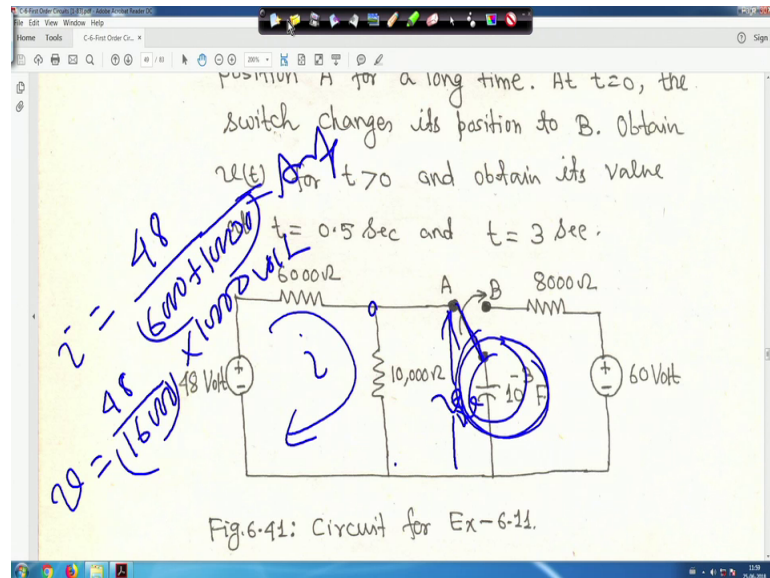 C-6-First Order Circuits [1-83].pdf - Adobe Acrobat Reader DC
File Edit View Window Help
Home Tools C-6-First Order Circ... × Sign
49 / 83 200%
position A for a long time. At t=0, the
switch changes its position to B. Obtain
v(t) for t>0 and obtain its value
t = 0.5 sec and t = 3 sec.
i = 48 / (6000+10000) Amp
v = 48 / (16000) × 10000 Volt
6000Ω A B 8000Ω
48 Volt i 10,000Ω 10⁻³ F 60 Volt
Fig.6.41: Circuit for Ex-6.11.
11:59